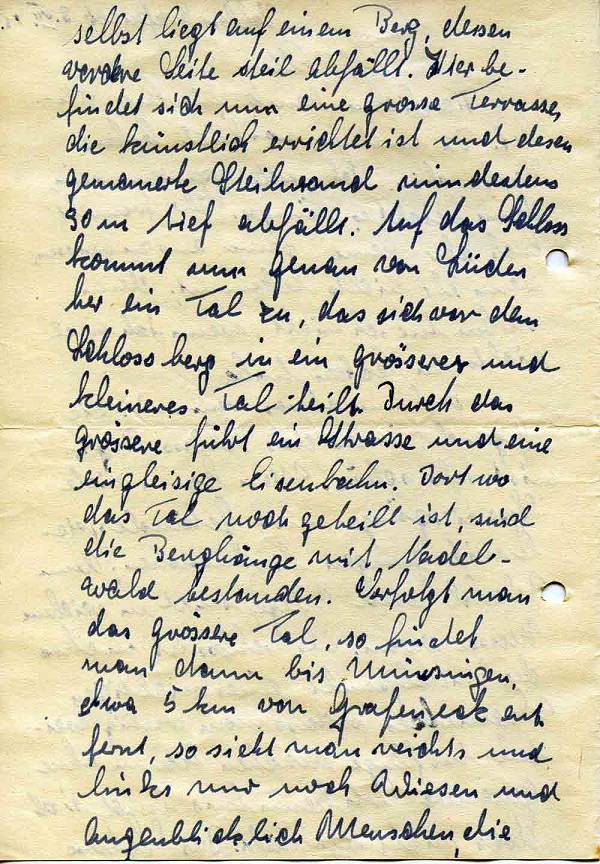 selbst liegt auf einem Berg, dessen
vordere Seite steil abfällt. Hier be-
findet sich nun eine grosse Terrasse,
die künstlich errichtet ist und desen
gemauerte Steilwand mindestens
30 m tief abfällt. Auf das Schloss
kommt nun genau von Süden
her ein Tal zu, das sich vor dem
Schlossberg in ein grösseres und
kleineres. Tal teilt. Durch das
grössere führt ein Strasse und eine
eingleisige Eisenbahn. Dort wo
das Tal noch geteilt ist, sind
die Berghänge mit Nadel-
wald bestanden. Verfolgt man
das grössere Tal, so findet
man dann bis Münsingen,
etwa 5 km von Grafeneck ent
fernt, so sieht man rechts und
links nur noch Wiesen und
Augenblicklich Menschen, die